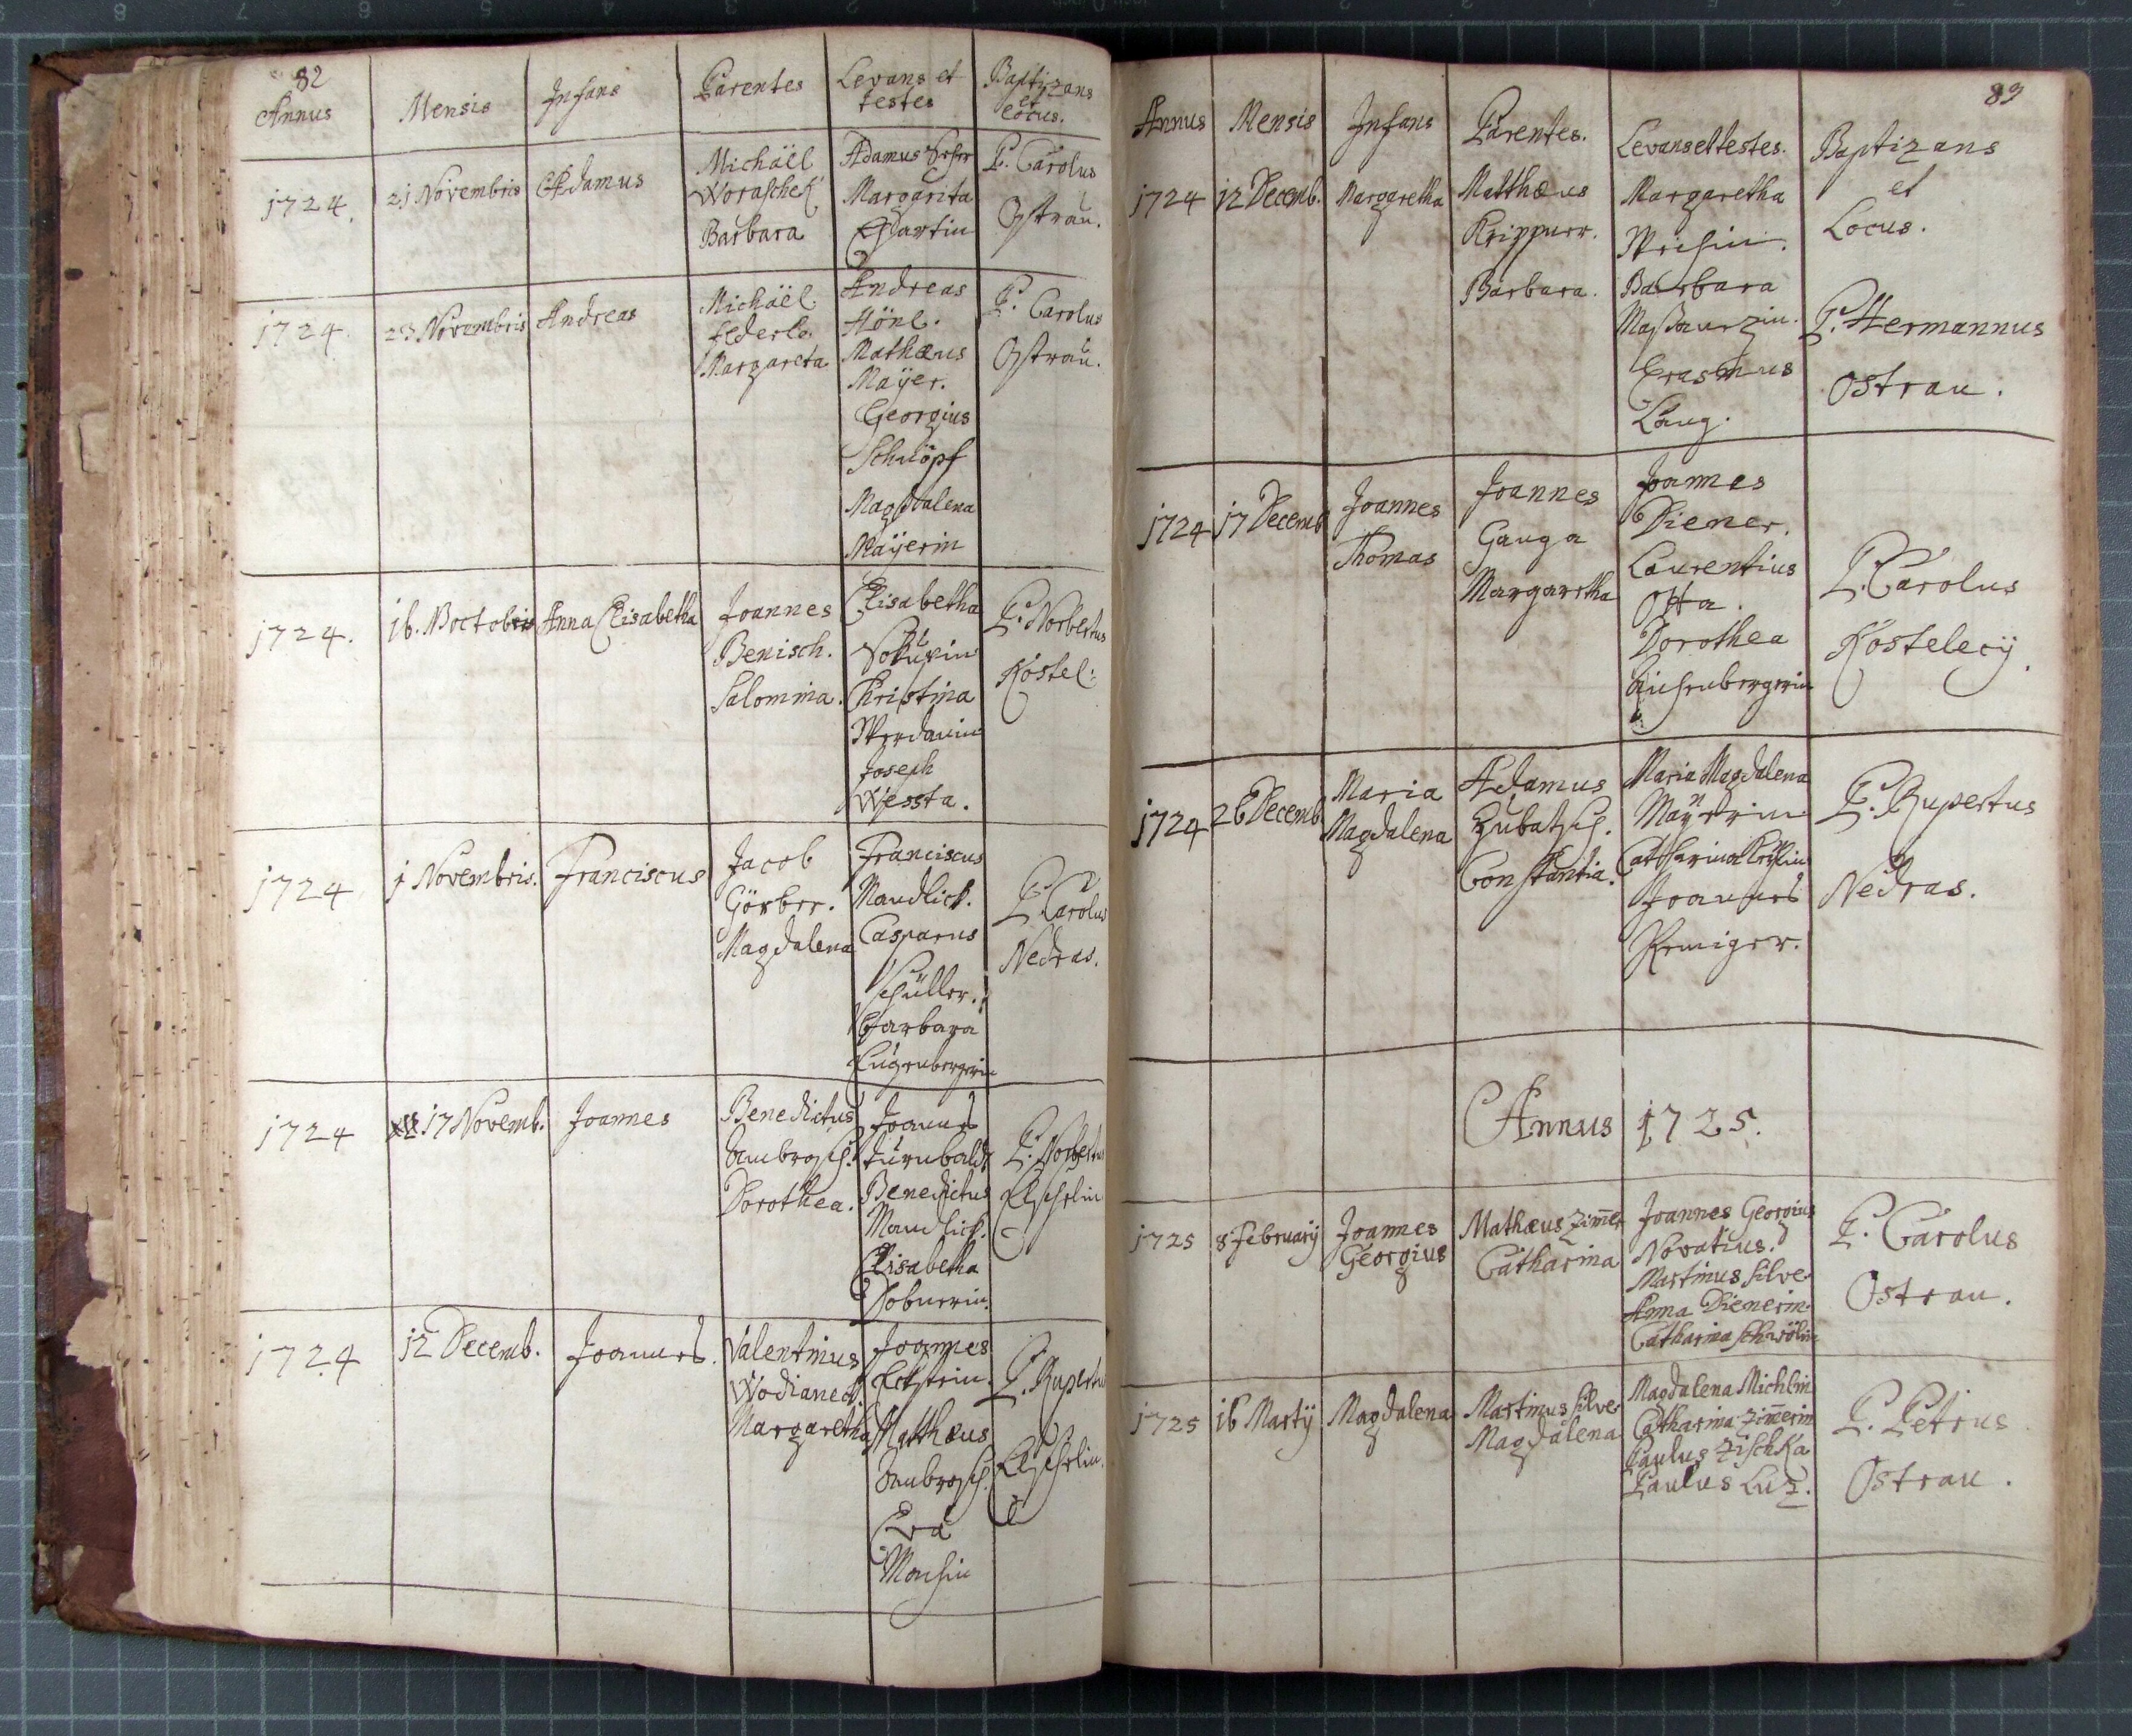 82
Annus
Mensis
Infans
Parentes
Levans et
testes
Baptizans
et
Locus.
1724.
21 Novembris
Adamus
Michaël
Woraschek
Barbara
Adamus
Margarita
Martin
P. Carolus
Ostrau.
1724.
23 Novembris
Andreas
Michaël
Federle.
Margareta
Andreas
Hönl.
Mathæus
Maÿer.
Georgius
Schnöpf
Magdalena
Maÿerin
P. Carolus
Ostrau.
1724.
16. 8octobris
Anna Elisabetha
Joannes
Benisch.
Salomina.
Elisabetha
Christina
Joseph
Wessta.
P. Norbertus
Kostel:
1724
1 Novembris.
Franciscus
Jacob
Görber.
Magdalena
Franciscus
Mandlick.
Casparus
Schüller.
Barbara
P. Carolus
Nedras.
1724
17 Novemb.
Joannes
Benedictus
Ambrosch.
Dorothea.
Joannes
Türnbaldt
Benedictus
Mandlick.
Elisabetha
Dobnerin.
P. Norbertus
1724
12 Decemb.
Joannes.
Valentinus
Wodianeck.
Margaretha
Joannes
Eckstein.
Matthæus
Ambrosch.
Eva
P. Rupertus
83
Annus
Mensis
Infans
Parentes.
Levans et testes.
Baptizans
et
Locus.
1724
12 Decemb.
Margaretha
Matthæus
Krippner.
Barbara.
Margaretha
Barbara
Erasmus
Lang.
P. Hermannus
Ostrau.
1724
17 Decemb
Joannes
Thomas
Joannes
Ganga
Margaretha
Joannes
Diener.
Laurentius
Otta.
Dorothea
Eichenbergerin
P. Carolus
Kostelecÿ.
1724
26 Decemb
Maria
Magdalena
Adamus
Zubatsch.
Constantia.
Maria Magdalena
Catharina
Joannes
P. Rupertus
Nedras.
Annus 1725.
1725
8 Februarÿ
Joannes
Georgius
Mathæus Zim̄er
Catharina
Joannes Georgius
Novatius.
Martinus Silver
Anna Dienerin.
Catharina Schwölin
P. Carolus
Ostrau.
1725
16 Martÿ
Magdalena
Martinus Silver
Magdalena
Magdalena Michlin
Catharina Zim̄erin
Paulus Zischka
Paulus Lutz.
P. Petrus
Ostrau.